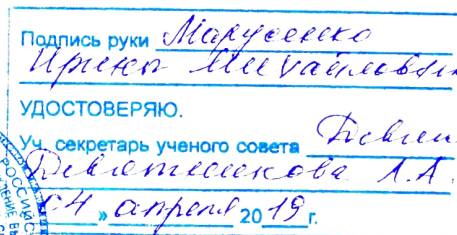 Подпись руки Марусенко
Ирины Михайловны
УДОСТОВЕРЯЮ.
Уч. секретарь ученого совета
Л.А.
04 » апреля 2019 г.